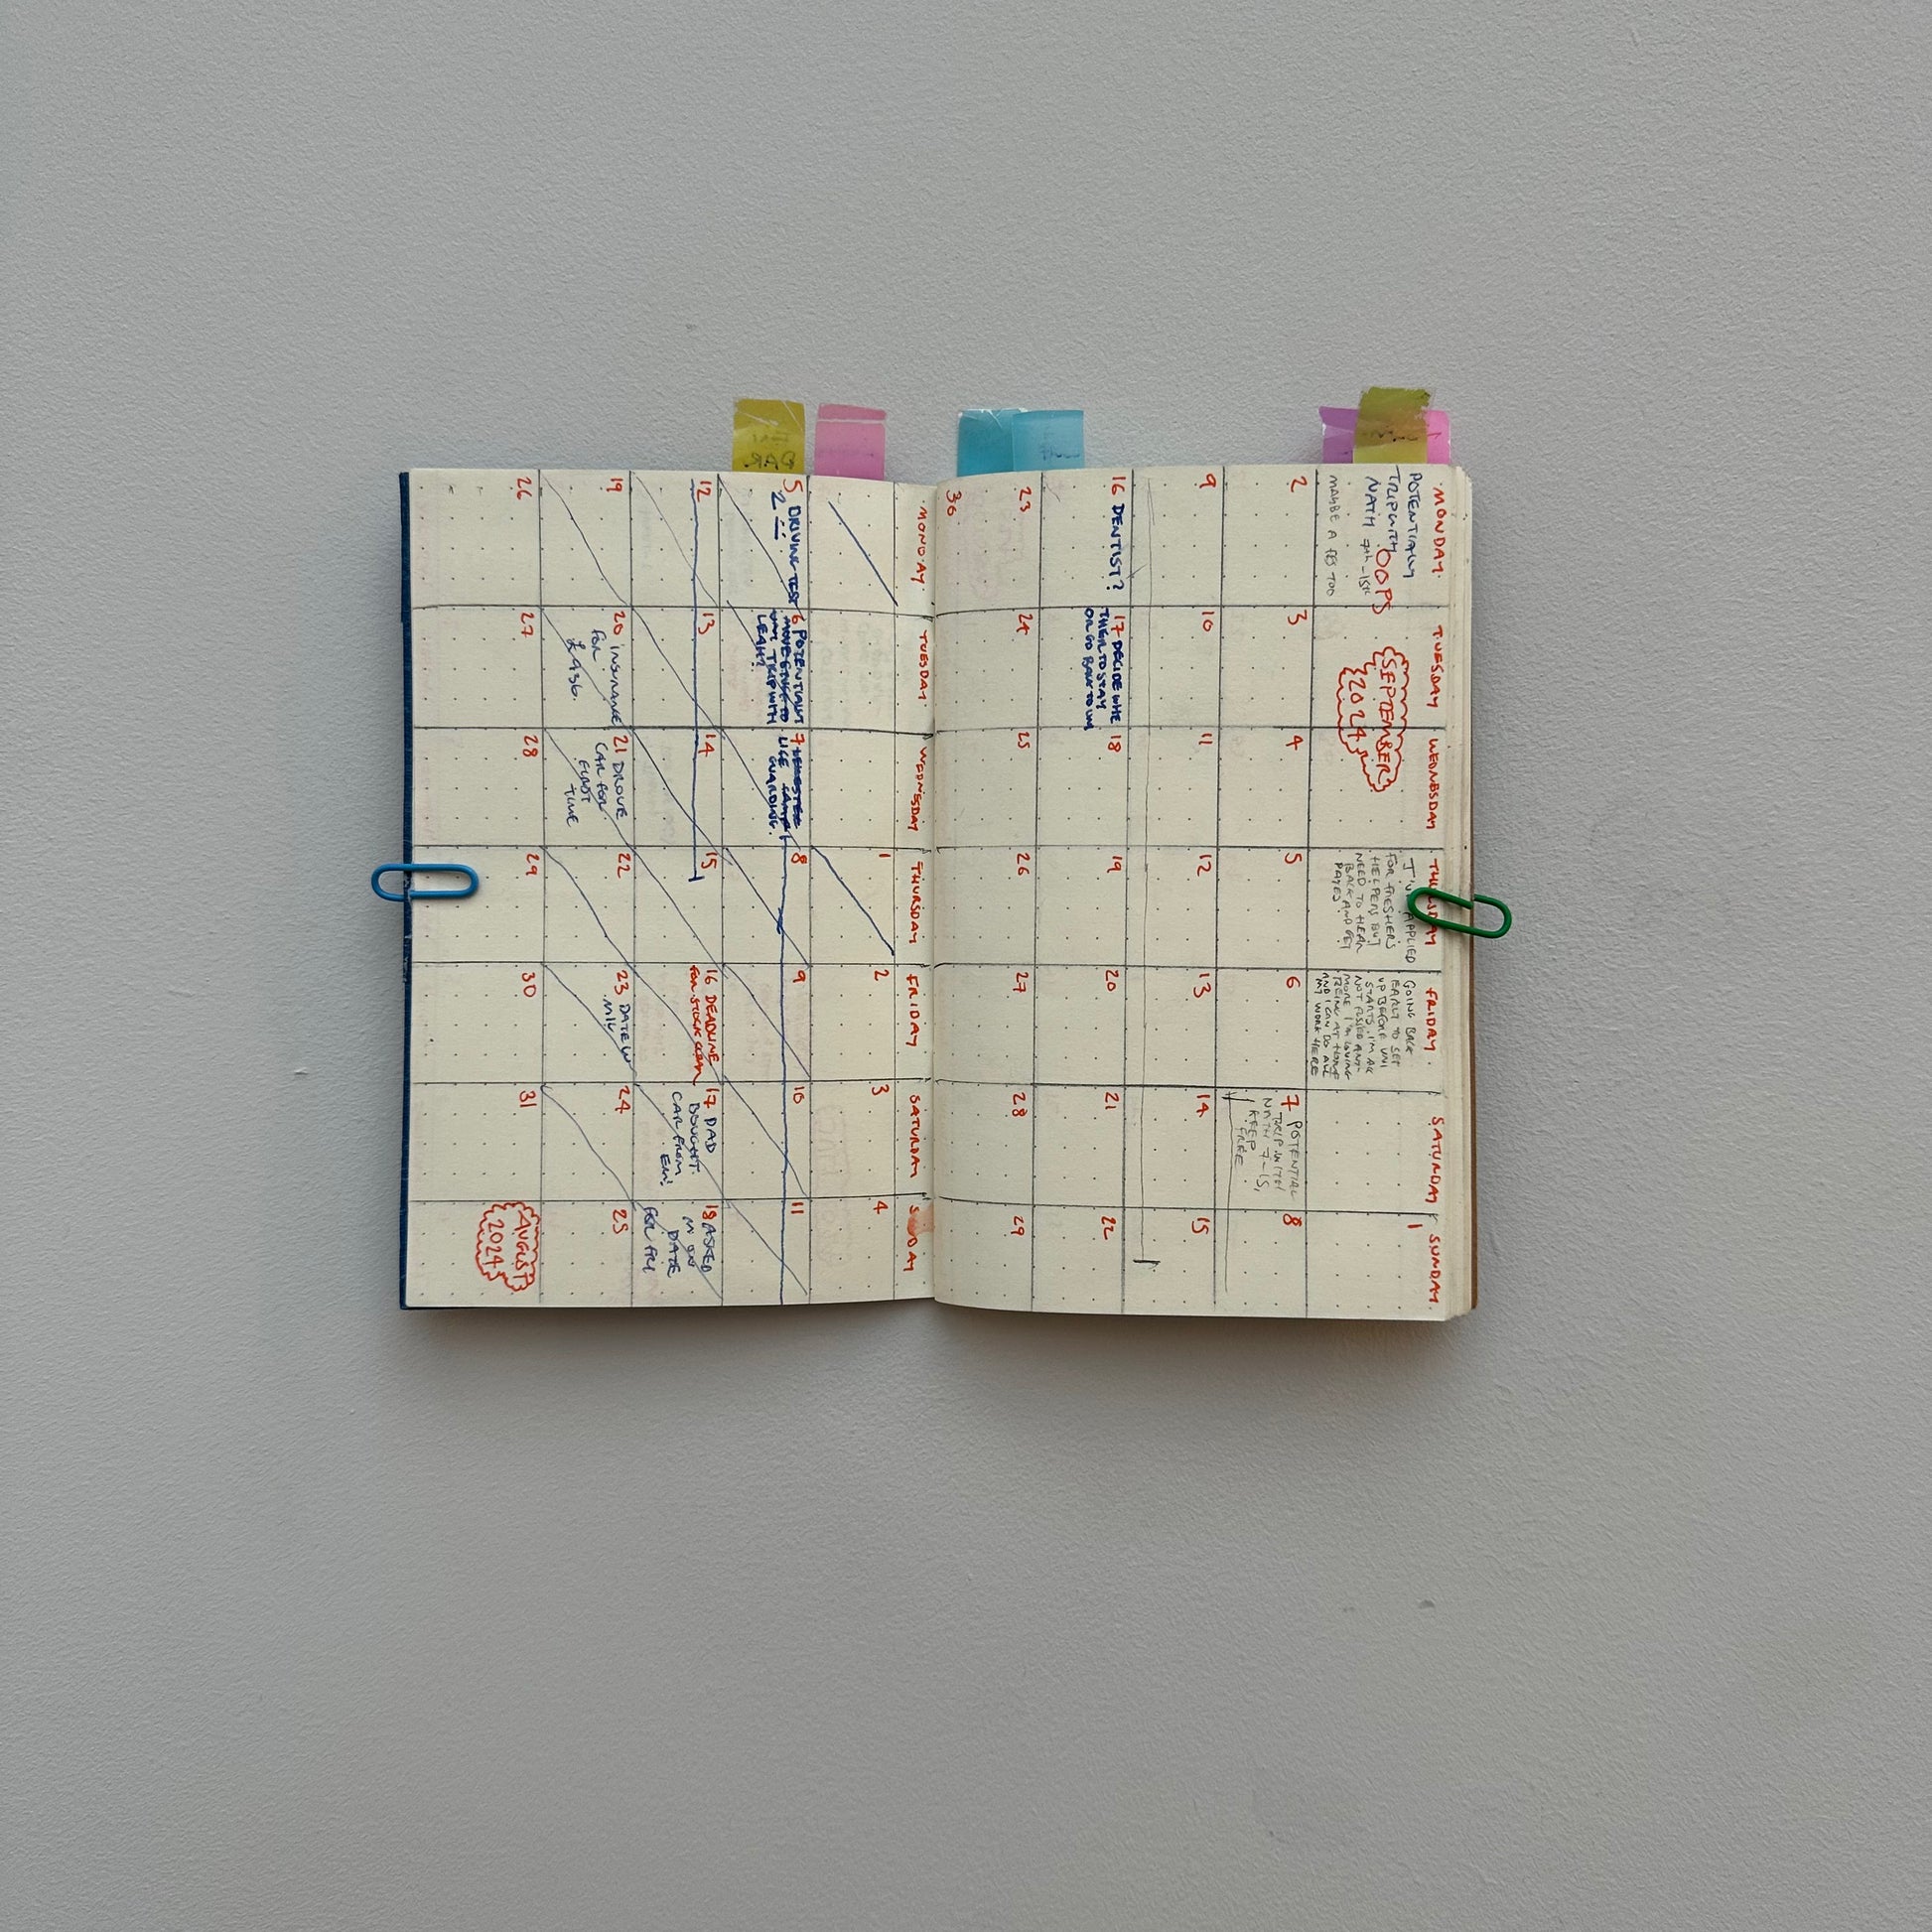 MONDAY.
TUESDAY
WEDNESDAY
THURSDAY
FRIDAY.
SATURDAY
SUNDAY.
POTENTIALLY
TRIP WITH
NATH 7th - 15th
MAYBE A FES TOO
OOPS
SEPTEMBER
2024
APPLIED
FOR FRESHERS
HELPERS BUT
NEED TO HEAR
BACK AND GET
GOING BACK
EARLY TO SET
UP BEFORE UNI
STARTS. I'M AC
NOT FUSSED ANY-
MORE I'M LOVING
BEING AT HOME
AND I CAN DO ALL
MY WORK HERE
1
2
3
4
5
6
7 POTENTIAL
TRIP WITH
NATH 7-15,
KEEP
FREE.
8
9
10
11
12
13
14
15
16 DENTIST?
17 DECIDE WHE
THER TO STAY
OR GO BACK TO UNI
18
19
20
21
22
23
24
25
26
27
28
29
30
MONDAY.
TUESDAY
WEDNESDAY
THURSDAY
FRIDAY
SATURDAY
1
2
3
4
5 DRIVING TEST
6 POTENTIALLY
TRIP WITH
LEAH?
7
LIFE
GUARDING.
8
9
10
11
12
13
14
15
16 DEADLINE
FOR STOCK
17 DAD
BOUGHT
CAR FROM
EM!
18 ASKED
M ON
DATE
FOR FRI
19
20 INSURANCE
FOR
£436.
21 DROVE
CAR FOR
FIRST
TIME
22
23 DATE W
MIK
24
25
26
27
28
29
30
31
AUGUST
2024